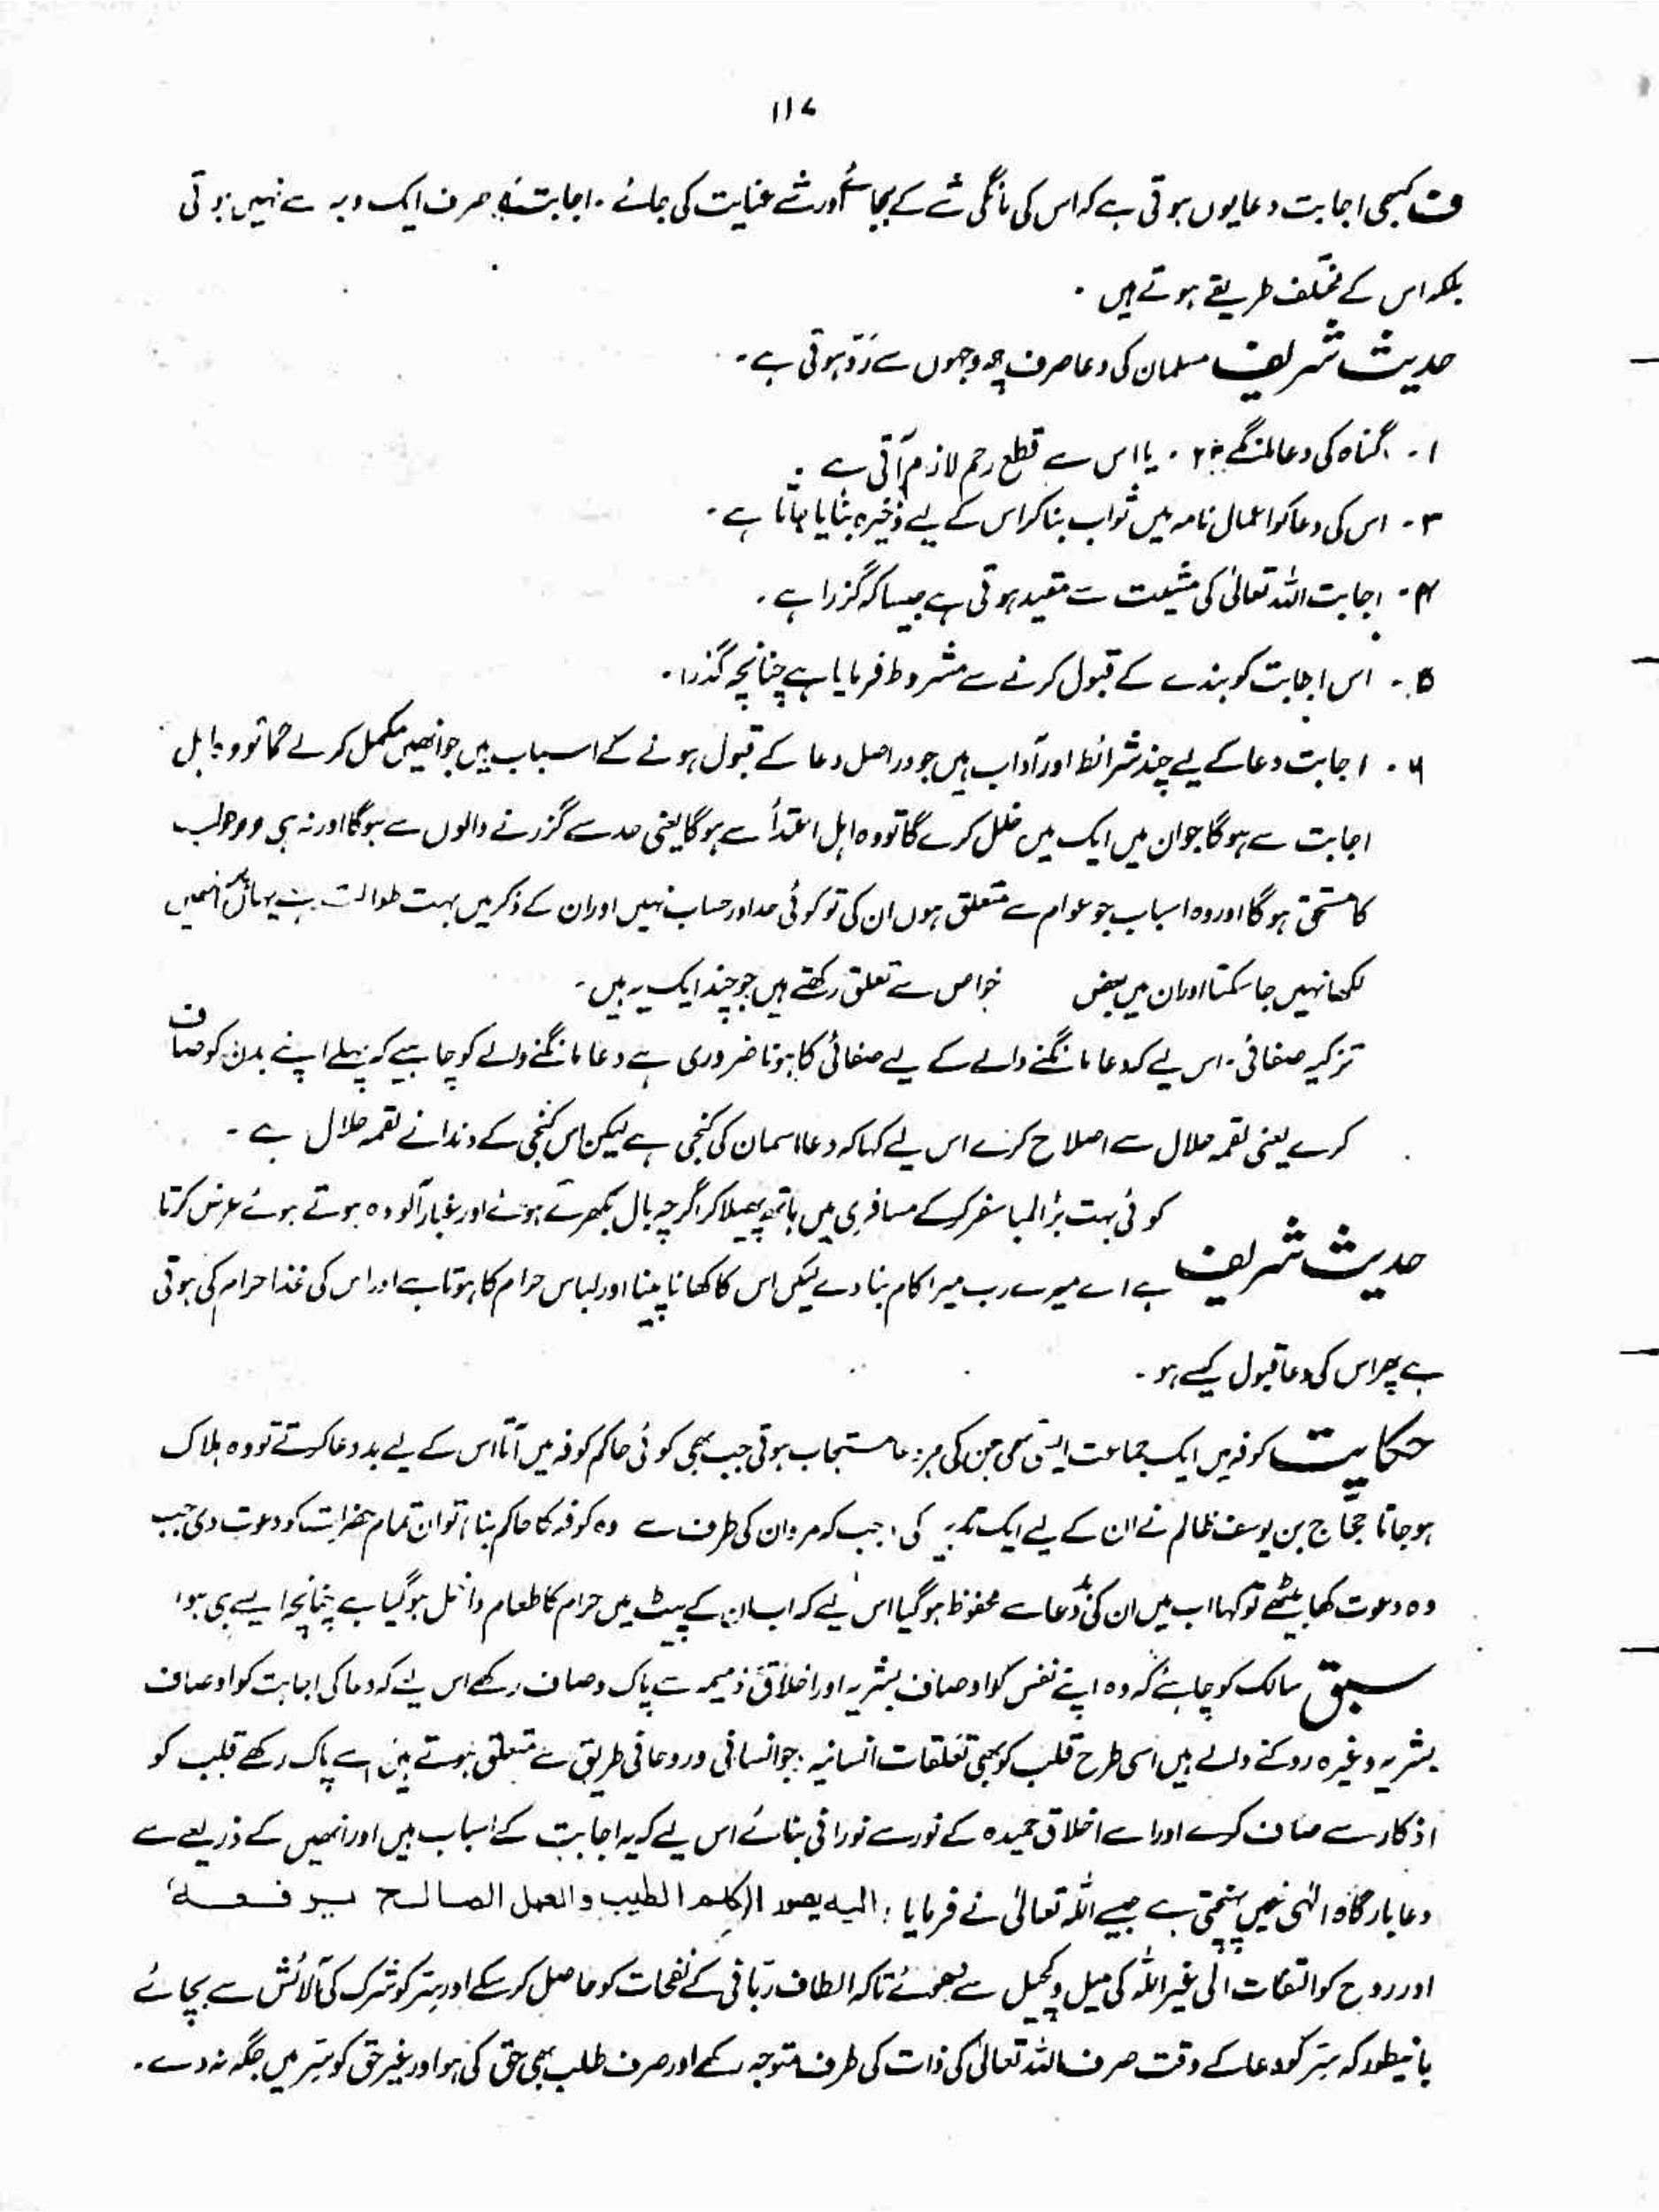 ۱۱۷
ف کبھی اجابت دعا یوں ہوتی ہے کہ اس کی مانگی شے کے بجائے اور شے عنایت کی جائے ۔ اجابت صرف ایک وجہ سے نہیں ہوتی
بلکہ اس کے مختلف طریقے ہوتے ہیں ۔
حدیث شریف مسلمان کی دعا صرف چھ وجہوں سے رَدّ ہوتی ہے ۔
۱ ۔ گناہ کی دعا مانگے ۲ ۔ یا اس سے قطع رحم لازم آتی ہے ۔
۳ ۔ اس کی دعا کو اعمال نامہ میں ثواب بنا کر اس کے لیے ذخیرہ بنایا جاتا ہے ۔
۴ ۔ اجابت اللہ تعالیٰ کی مشیت سے مقید ہوتی ہے جیسا کہ گزرا ہے ۔
۵ ۔ اس اجابت کو بندے کے قبول کرنے سے مشروط فرمایا ہے چنانچہ گذرا ۔
۶ ۔ اجابت دعا کے لیے چند شرائط اور آداب ہیں جو دراصل دعا کے قبول ہونے کے اسباب ہیں جو انھیں مکمل کرلے گا تو وہ اہل
اجابت سے ہوگا جو ان میں ایک میں خلل کرے گا تو وہ اہل اعتدأ سے ہوگا یعنی حد سے گزرنے والوں سے ہوگا اور نہ ہی وہ جواب
کا مستحق ہوگا اور وہ اسباب جو عوام سے متعلق ہوں ان کی تو کوئی حد اور حساب نہیں اور ان کے ذکر میں بہت طوالت ہے یہاں پر انھیں
لکھا نہیں جا سکتا اور ان میں بعض خواص سے تعلق رکھتے ہیں جو چند ایک یہ ہیں ۔
تزکیہ صفائی ۔ اس لیے کہ دعا مانگنے والے کے لیے صفائی کا ہونا ضروری ہے دعا مانگنے والے کو چاہیے کہ پہلے اپنے بدن کو صاف
کرے یعنی لقمہ حلال سے اصلاح کرے اس لیے کہا کہ دعا اسمان کی کنجی ہے لیکن اس کنجی کے دندانے لقمہ حلال ہے ۔
حدیث شریف کوئی بہت بڑا لمبا سفر کر کے مسافری میں ہاتھ پھیلا کر اگرچہ بال بکھرے ہوئے اور غبار آلودہ ہوتے ہوئے عرض کرتا
ہے اے میرے رب میرا کام بنا دے لیکن اس کا کھانا پینا اور لباس حرام کا ہوتا ہے اور اس کی غذا حرام کی ہوتی
ہے پھر اس کی دعا قبول کیسے ہو ۔
حکایت کوفہ میں ایک جماعت ایسی تھی جن کی ہر دعا مستجاب ہوتی جب بھی کوئی حاکم کوفہ میں آتا اس کے لیے بددعا کرتے تو وہ ہلاک
ہو جاتا حجّاج بن یوسف ظالم نے ان کے لیے ایک تدبیر کی ، جب کہ مروان کی طرف سے وہ کوفہ کا حاکم بنا ، تو ان تمام حضرات کو دعوت دی جب
وہ دعوت کھا بیٹھے تو کہا اب میں ان کی بد دعا سے محفوظ ہوگیا اس لیے کہ اب ان کے پیٹ میں حرام کا طعام داخل ہوگیا ہے چنانچہ ایسے ہی ہوا
سبق سالک کو چاہئے کہ وہ اپنے نفس کو اوصاف بشریہ اور اخلاق ذمیمہ سے پاک و صاف رکھے اس لیے کہ دعا کی اجابت کو اوصاف
بشریہ وغیرہ روکنے والے ہیں اسی طرح قلب کو بھی تعلقات انسانیہ ، جو انسانی و روحانی طریق سے متعلق ہوتے ہیں سے پاک رکھے قلب کو
اذکار سے صاف کرے اور اسے اخلاق حمیدہ کے نور سے نورانی بنائے اس لیے کہ یہ اجابت کے اسباب ہیں اور انھیں کے ذریعے سے
دعا بارگاہ الٰہی میں پہنچتی ہے جیسے اللہ تعالیٰ نے فرمایا : الیه یصعد الکلم الطیب والعمل الصالح یرفعه ،
اور روح کو التفات الی غیر اللہ کی میل و کچیل سے دھوئے تاکہ الطاف ربّانی کے نفحات کو حاصل کر سکے اور سِرّ کو شرک کی آلائش سے بچائے
بانیطور کہ سِرّ کو دعا کے وقت صرف اللہ تعالیٰ کی ذات کی طرف متوجہ رکھے اور صرف طلب بھی حق کی ہو اور غیر حق کو سِرّ میں جگہ نہ دے ۔